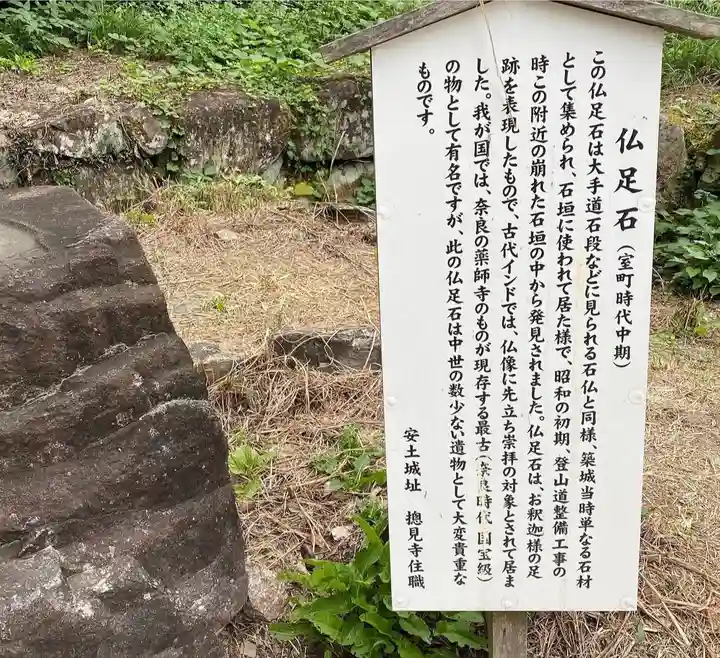 仏足石（室町時代中期）
この仏足石は大手道石段などに見られる石仏と同様、築城当時単なる石材
として集められ、石垣に使われて居た様で、昭和の初期、登山道整備工事の
時この附近の崩れた石垣の中から発見されました。仏足石は、お釈迦様の足
跡を表現したもので、古代インドでは、仏像に先立ち崇拝の対象とされて居ま
した。我が国では、奈良の薬師寺のものが現存する最古（奈良時代 国宝級）
の物として有名ですが、此の仏足石は中世の数少ない遺物として大変貴重な
ものです。
安土城址 摠見寺住職